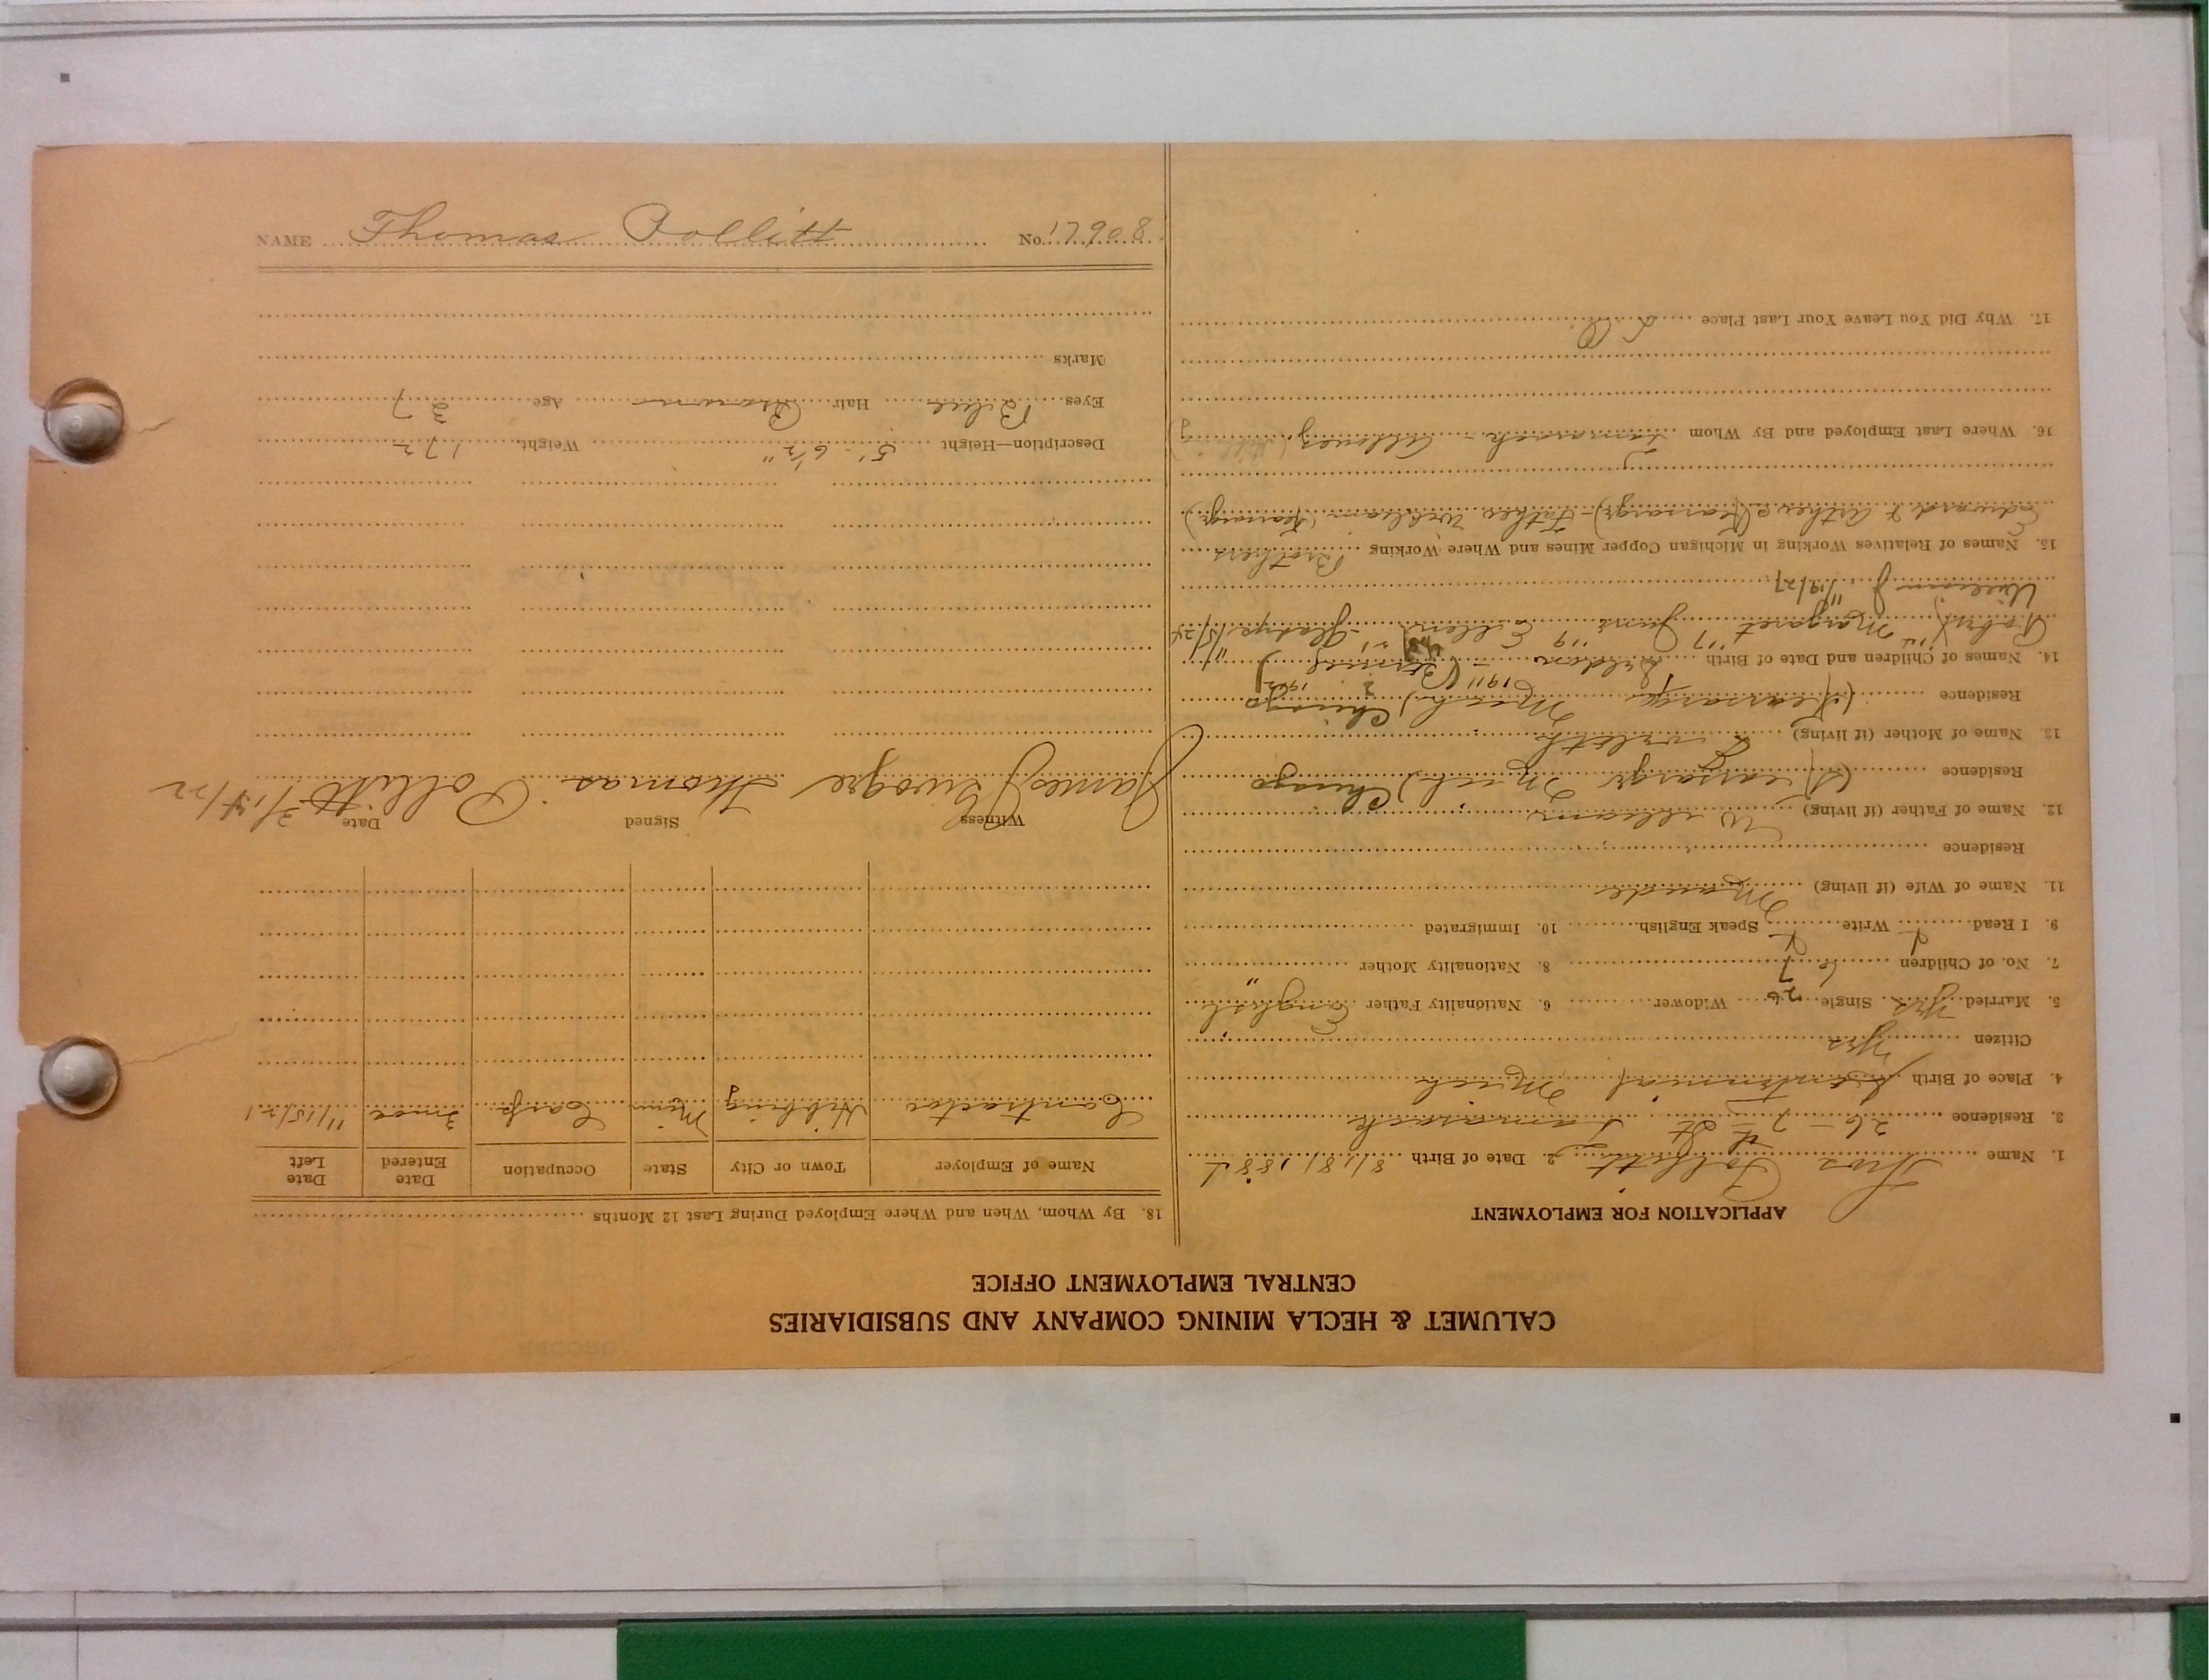 CALUMET & HECLA MINING COMPANY AND SUBSIDIARIES
CENTRAL EMPLOYMENT OFFICE
APPLICATION FOR EMPLOYMENT
1. Name Thos Pollitt 2. Date of Birth 8/18/188
3. Residence 26-7th St Tamarack
4. Place of Birth Centennial Mich
Citizen Yes
5. Married Yes Single Widower 6. Nationality Father English
7. No. of Children 6 7 8. Nationality Mother "
9. I Read Write Speak English 10. Immigrated
11. Name of Wife (if living) Maude
Residence
12. Name of Father (if living) William
Residence (Kearsarge Mich) Chicago
13. Name of Mother (if living)
Residence (Kearsarge Mich) Chicago
14. Names of Children and Date of Birth 1911 1922
Robert Margaret "17 June "19 Ellen Gladys 1/5/24
William J 11/19/27
15. Names of Relatives Working in Michigan Copper Mines and Where Working Brothers
Edward & Arthur (Kearsarge) - Father William (Kearsarge)
16. Where Last Employed and By Whom Tamarack - Allouez
17. Why Did You Leave Your Last Place
18. By Whom, When and Where Employed During Last 12 Months
Name of Employer Town or City State Occupation Date Entered Date Left
Contractor Hibbing Minn Carp 3 mos 11/15/21
Witness Signed Date
James Thomas Pollitt 3/14/22
Description—Height 5'-6½" Weight 172
Eyes Blue Hair Brown Age 37
Marks
NAME Thomas Pollitt No. 17908